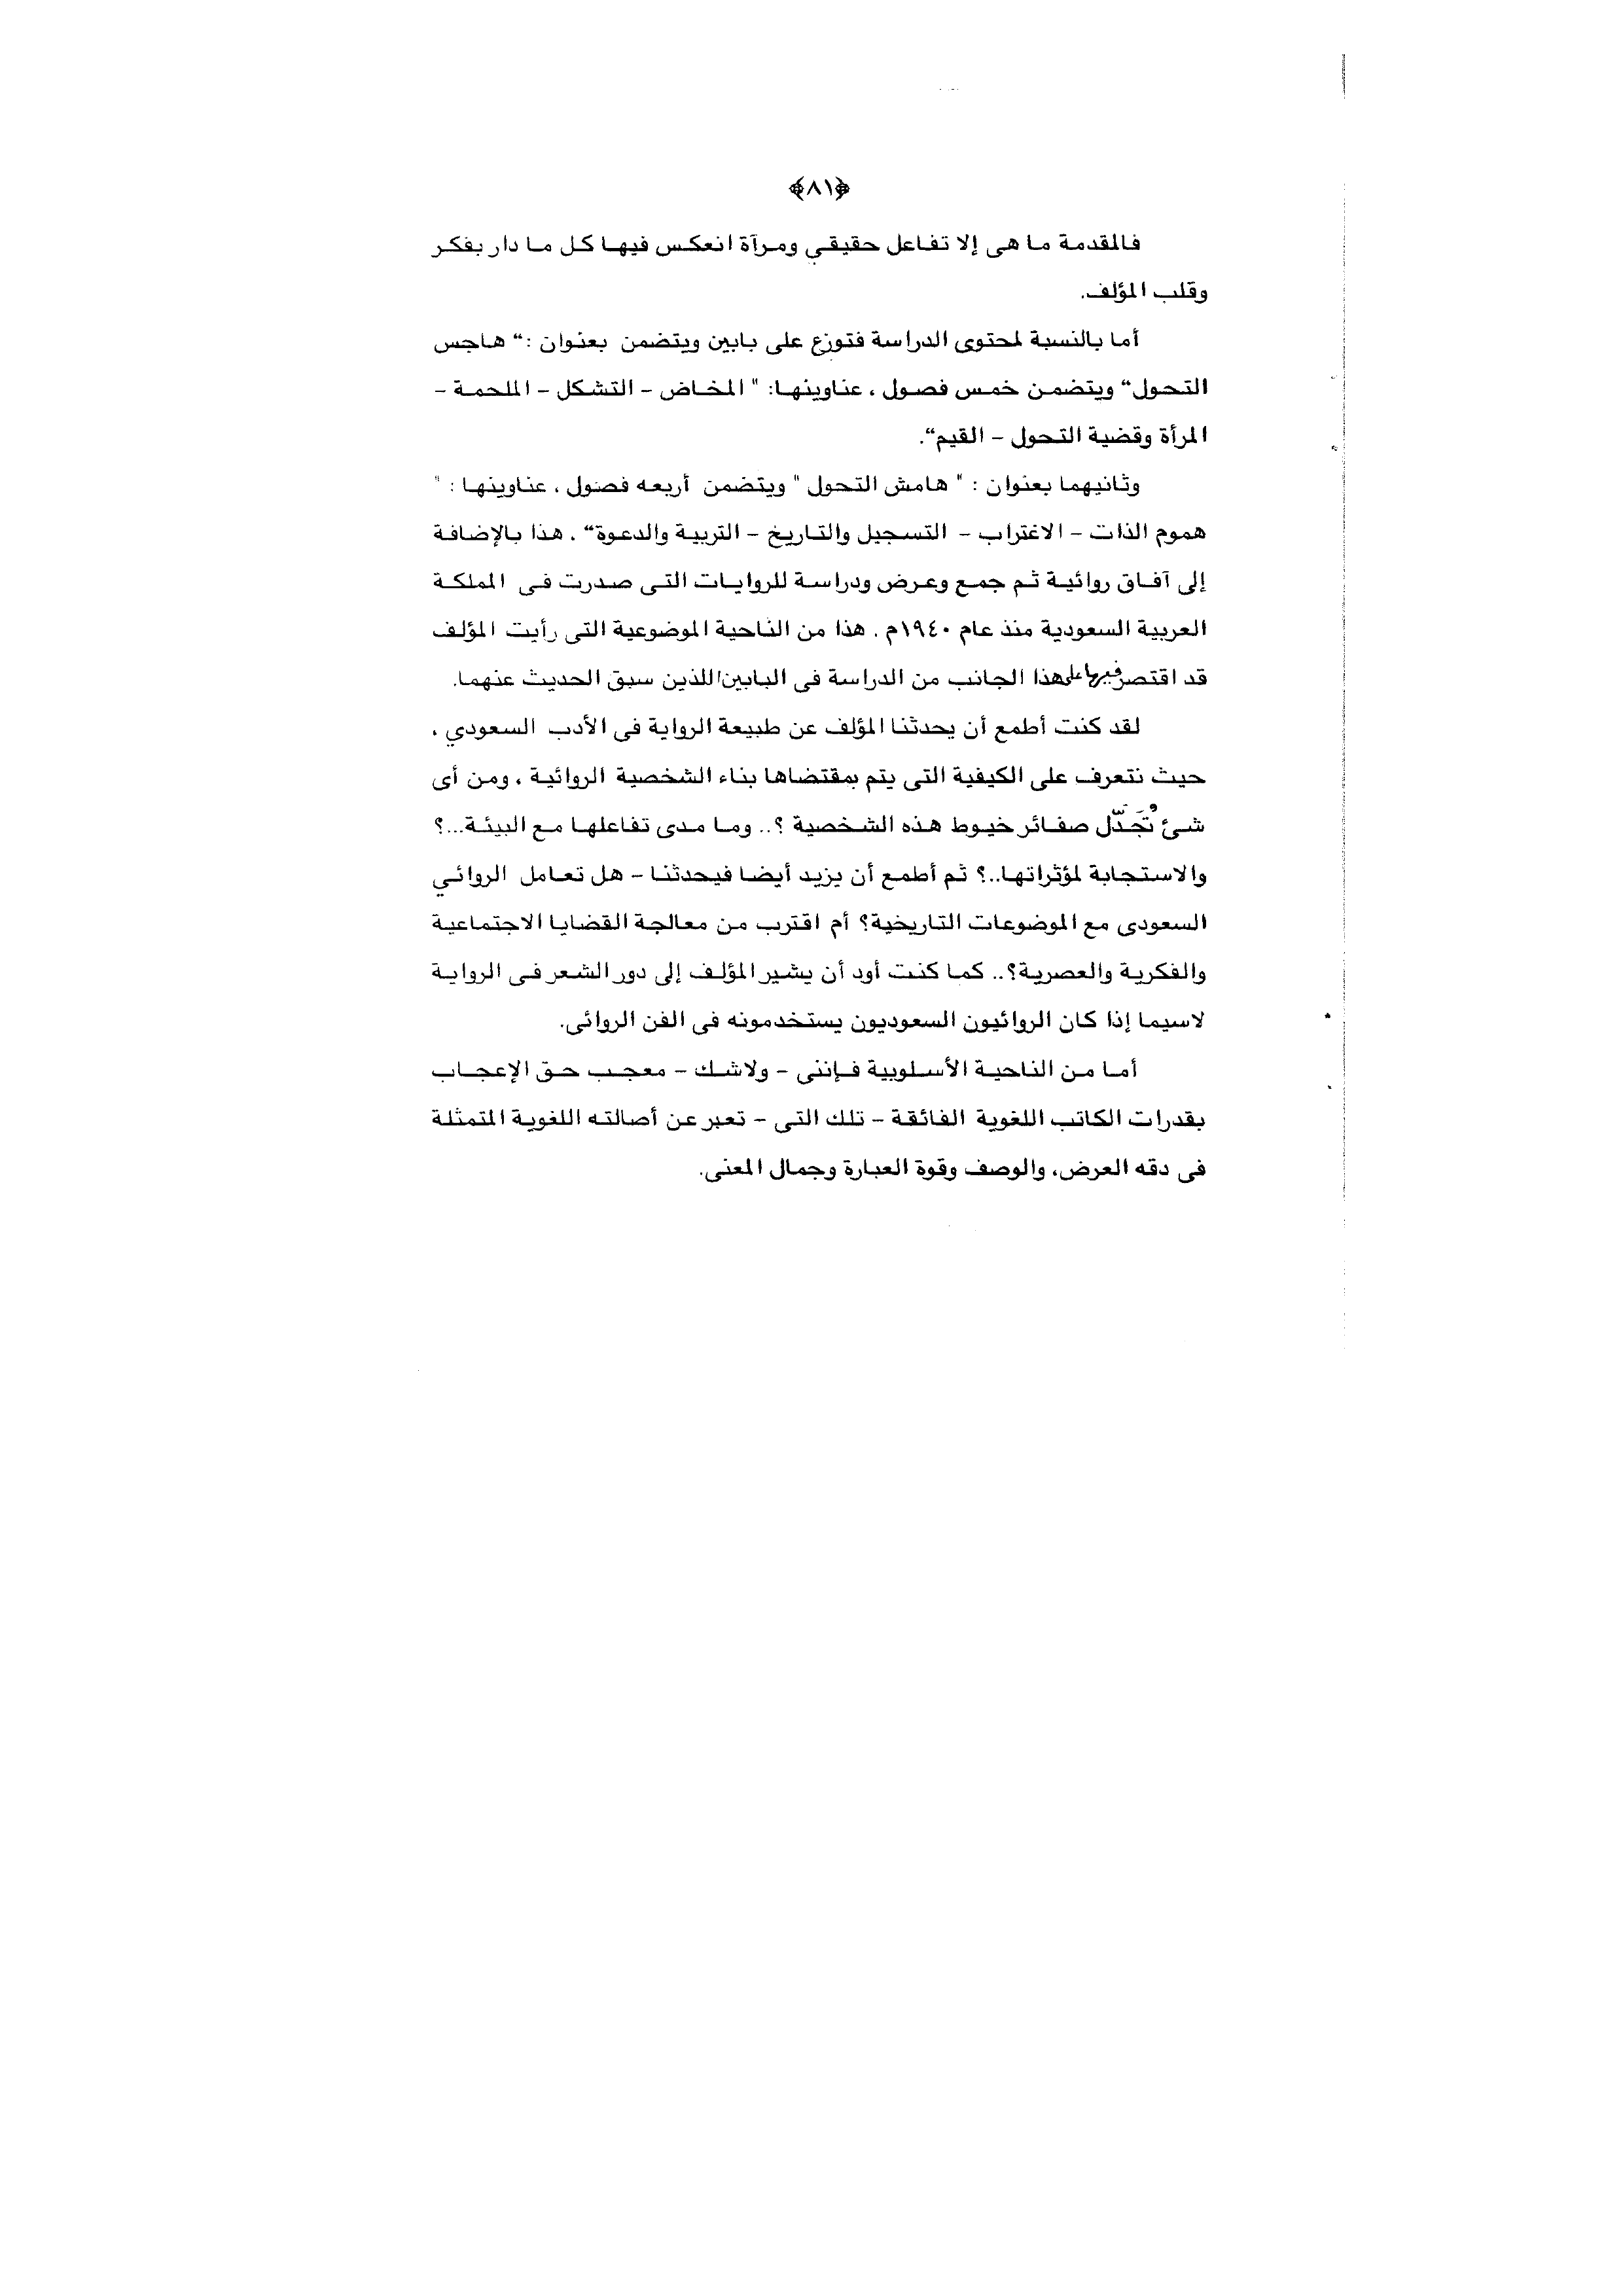 ﴿٨١﴾
فالمقدمة ما هى إلا تفاعل حقيقي ومرآة انعكس فيها كل ما دار بفكر
وقلب المؤلف.
أما بالنسبة لمحتوى الدراسة فتوزع على بابين ويتضمن بعنوان :“ هاجس
التحول“ ويتضمن خمس فصول ، عناوينها: " المخاض – التشكل – الملحمة –
المرأة وقضية التحول – القيم“.
وثانيهما بعنوان : " هامش التحول " ويتضمن أربعه فصول ، عناوينها : "
هموم الذات – الاغتراب – التسجيل والتاريخ – التربية والدعوة“ . هذا بالإضافة
إلى آفاق روائية ثم جمع وعرض ودراسة للروايات التى صدرت فى المملكة
العربية السعودية منذ عام ١٩٤٠م . هذا من الناحية الموضوعية التى رأيت المؤلف
قد اقتصر فيها على هذا الجانب من الدراسة فى البابين اللذين سبق الحديث عنهما.
لقد كنت أطمع أن يحدثنا المؤلف عن طبيعة الرواية فى الأدب السعودي ،
حيث نتعرف على الكيفية التى يتم بمقتضاها بناء الشخصية الروائية ، ومن أى
شئ تُجَدّل صفائر خيوط هذه الشخصية ؟.. وما مدى تفاعلها مع البيئة...؟
والاستجابة لمؤثراتها..؟ ثم أطمع أن يزيد أيضا فيحدثنا – هل تعامل الروائي
السعودى مع الموضوعات التاريخية؟ أم اقترب من معالجة القضايا الاجتماعية
والفكرية والعصرية؟.. كما كنت أود أن يشير المؤلف إلى دور الشعر فى الرواية
لاسيما إذا كان الروائيون السعوديون يستخدمونه فى الفن الروائى.
أما من الناحية الأسلوبية فإننى – ولاشك – معجب حق الإعجاب
بقدرات الكاتب اللغوية الفائقة – تلك التى – تعبر عن أصالته اللغوية المتمثلة
فى دقه العرض، والوصف وقوة العبارة وجمال المعنى.